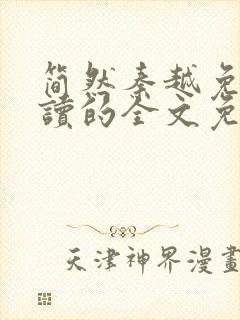 简然秦越免
讀的全文免
天津神界漫畫